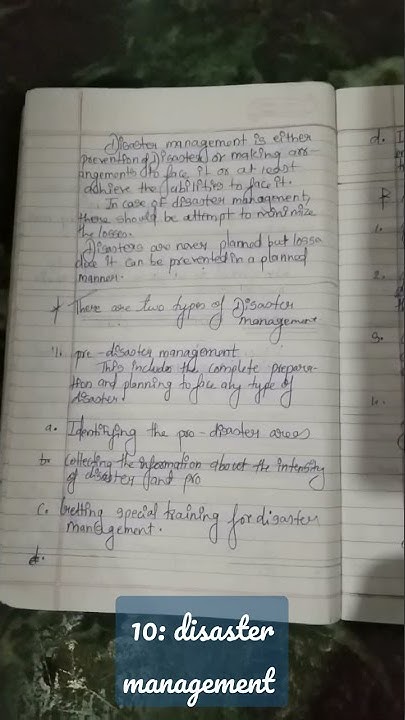 Disaster management is either
prevention of Disaster, or making arr-
angements to face it or at least
achieve the abilities to face it.
In case of disaster management,
there should be attempt to minimize
the losses.
Disasters are never planned but losses
due it can be prevented in a planned
manner.
* There are two types of Disaster
management
1. pre-disaster management
This includes the complete prepara-
tion and planning to face any type of
disaster.
a. Identifying the pro-disaster areas
b. Collecting the information about the intensity
of disaster and pro
c. Getting special training for disaster
management.
d.
d.
1.
2.
3.
10: disaster
management